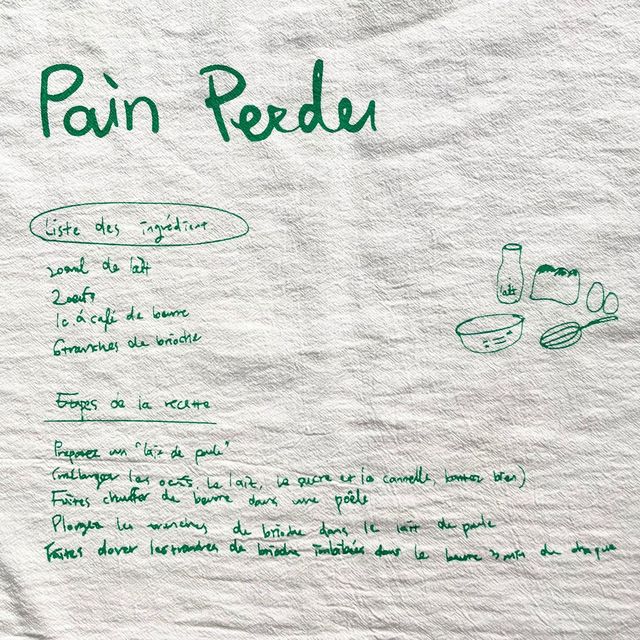 Pain Perdu
Liste des ingrédient
200ml de lait
2 oeufs
1c à café de beurre
6 tranches de brioche
lait
Etapes de la recette
Préparez un "lait de poule"
(mélangez les oeufs, le lait, le sucre et la cannelle, battez bien)
Faites chauffer de beurre dans une poêle
Plongez les tranches de brioche dans le lait de poule
Faites dorer les tranches de brioche imbibées dans le beurre 3 min de chaque